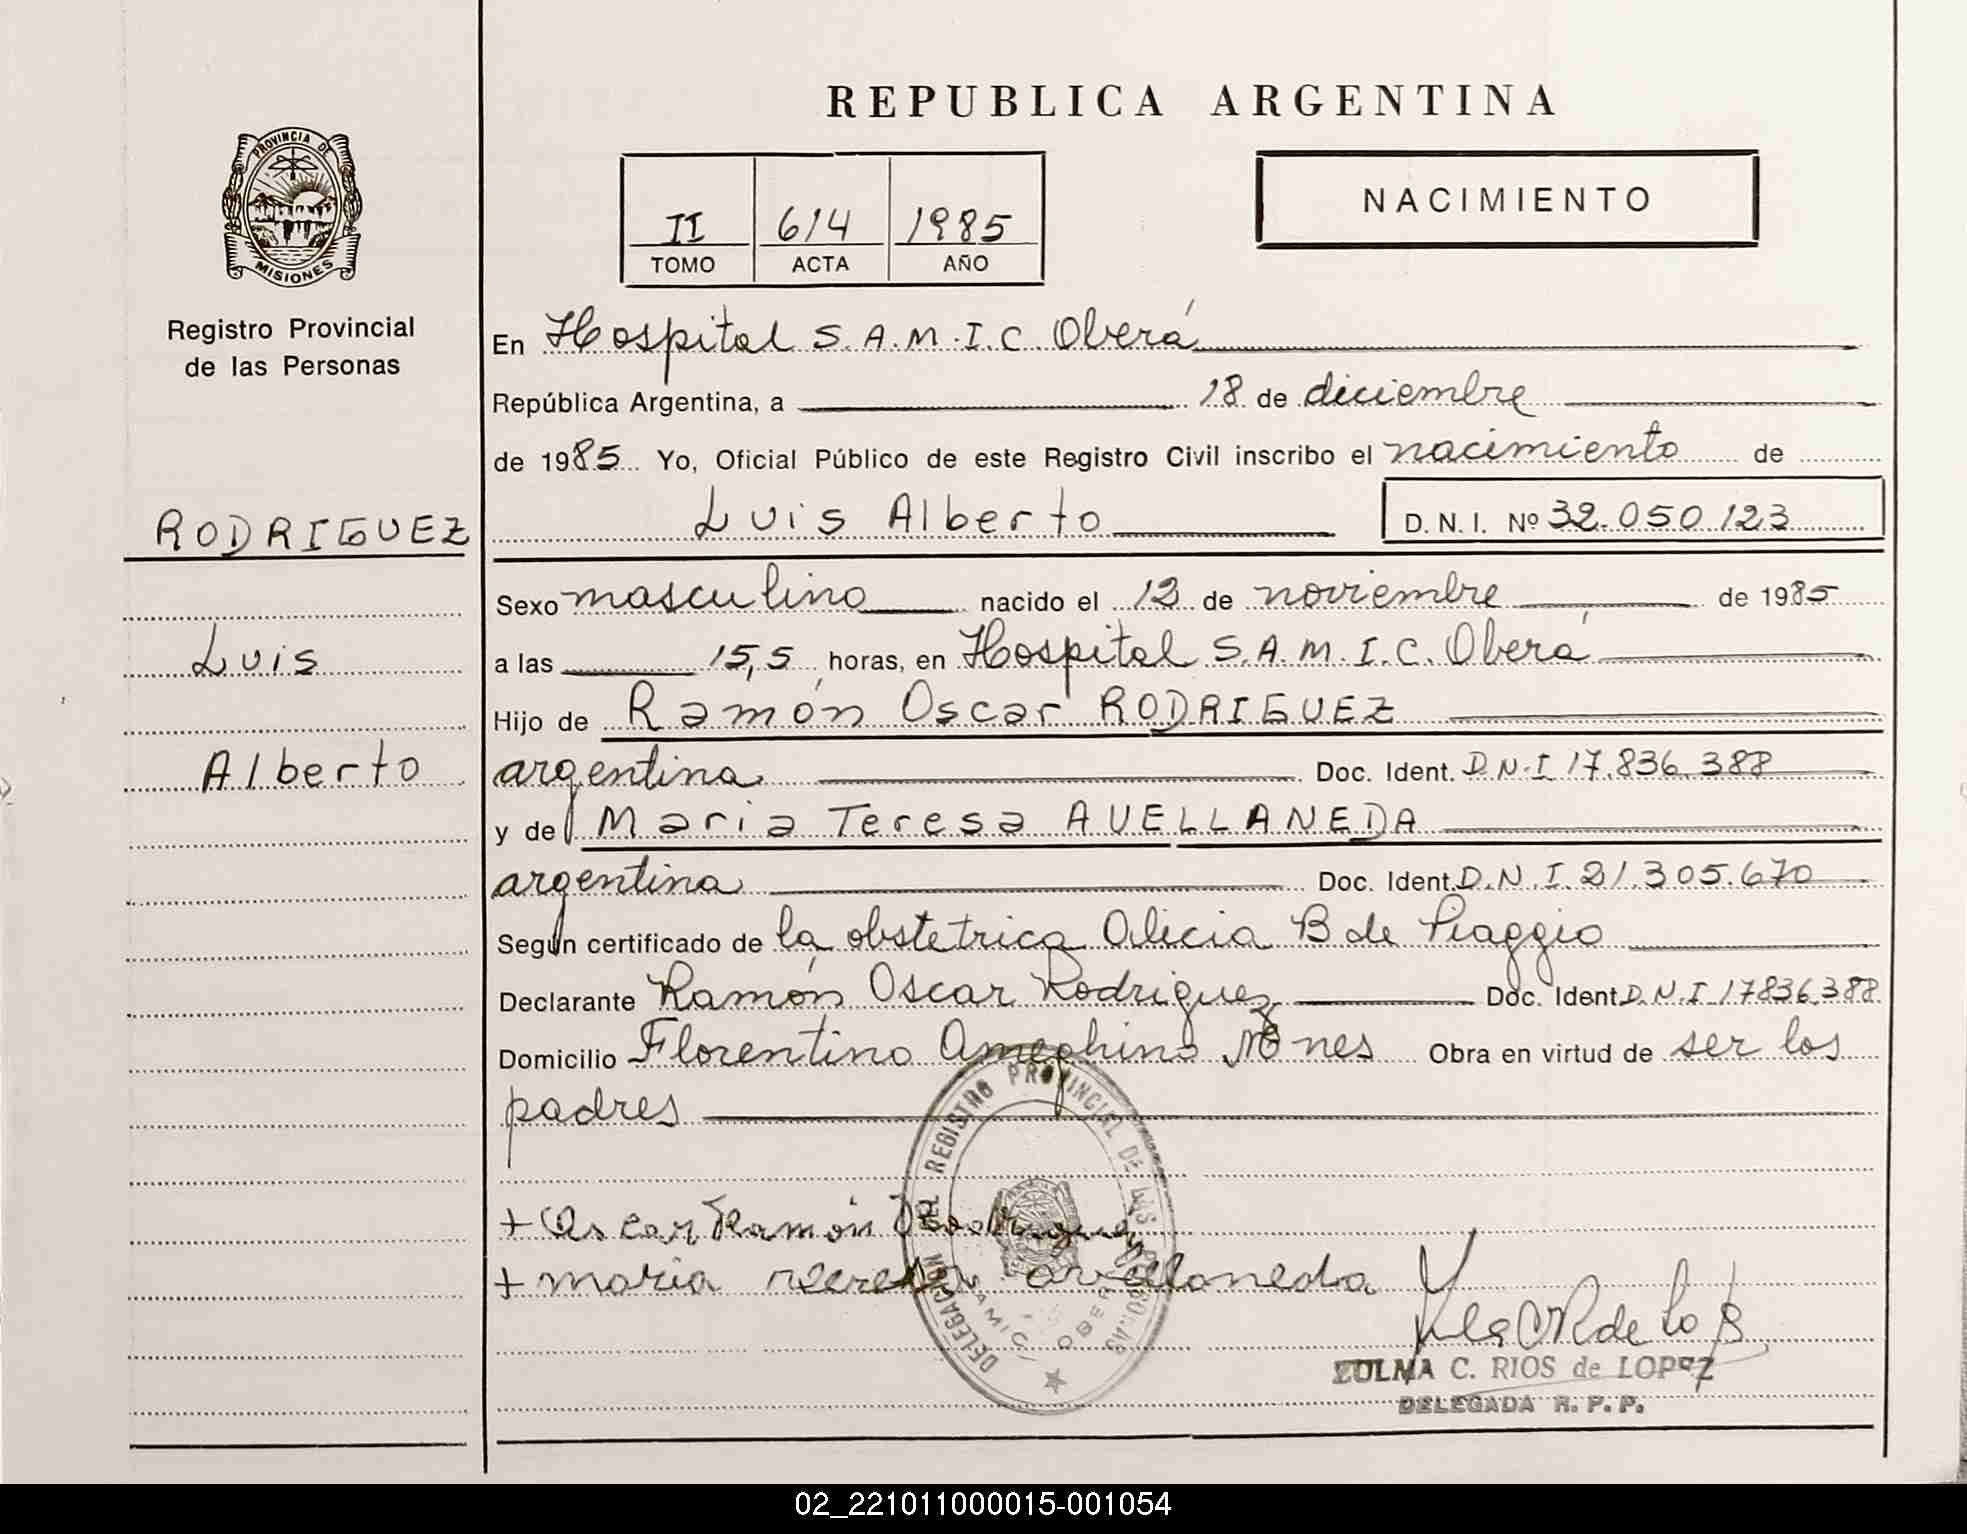 REPUBLICA ARGENTINA
PROVINCIA DE
MISIONES
Registro Provincial
de las Personas
II 614 1985
TOMO ACTA AÑO
NACIMIENTO
En Hospital S.A.M.I.C. Oberá
República Argentina, a 18 de diciembre
de 1985 Yo, Oficial Público de este Registro Civil inscribo el nacimiento de
RODRIGUEZ
Luis Alberto D.N.I. Nº 32.050.123
Sexo masculino nacido el 12 de noviembre de 1985
Luis
a las 15,5 horas, en Hospital S.A.M.I.C. Oberá
Hijo de Ramón Oscar RODRIGUEZ
Alberto
argentina Doc. Ident. D.N.I 17.836.388
y de Maria Teresa AVELLANEDA
argentina Doc. Ident. D.N.I. 21.305.670
Según certificado de la obstetrica Alicia B de Piaggio
Declarante Ramón Oscar Rodriguez Doc. Ident. D.N.I 17836.388
Domicilio Florentino Ameghino Mnes Obra en virtud de ser los
padres
DELEGACION DEL REGISTRO PROVINCIAL DE LAS PERSONAS
SAMIC - OBERA
+ Oscar Ramón Rodriguez
+ maria avellaneda
ZULMA C. RIOS de LOPEZ
DELEGADA R. P. P.
02_221011000015-001054